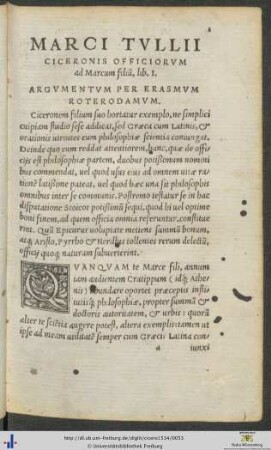 MARCI TVLLII
CICERONIS OFFICIORVM
ad Marcum filiũ, lib. I.
ARGVMENTVM PER ERASMVM
ROTERODAMVM.
Ciceronem filium suo hortatur exemplo, ne simplici
cuipiam studio sese addicat, sed Græca cum Latinis, &
orationis uirtutes cum philosophiæ scientia coniungat.
Deinde quo cum reddat attentiorem, hanc, quæ de offi-
cijs est philosophiæ partem, duobus potissimum nomini
bus commendat, uel quod usus eius ad omnem uitæ ra
tionẽ latissime pateat, uel quod hæc una sit philosophis
omnibus inter se communis. Postremo testatur se in hac
disputatione Stoicos potissimũ sequi, quod hi uel optime
boni finem, ad quem officia omnia referuntur, constitue
rint. Quũ Epicurus uoluptate metiens summũ bonum,
acq; Aristo, Pyrrho & Herillus tollentes rerum delectũ,
officij quoq; naturam subuerterint.
QVANQVAM te Marce fili, annum
iam audientem Cratippum (idq; Athe
nis) abundare oportet præceptis insti
tutisq; philosophiæ, propter summã &
doctoris autoritatem, & urbis: quorũ
alter te scientia augere potest, altera exemplis: tamen ut
ipse ad meam utilitatẽ semper cum Græcis Latina con-
a iunxi
http://dl.ub.uni-freiburg.de/diglit/cicero1534/0053
© Universitätsbibliothek Freiburg